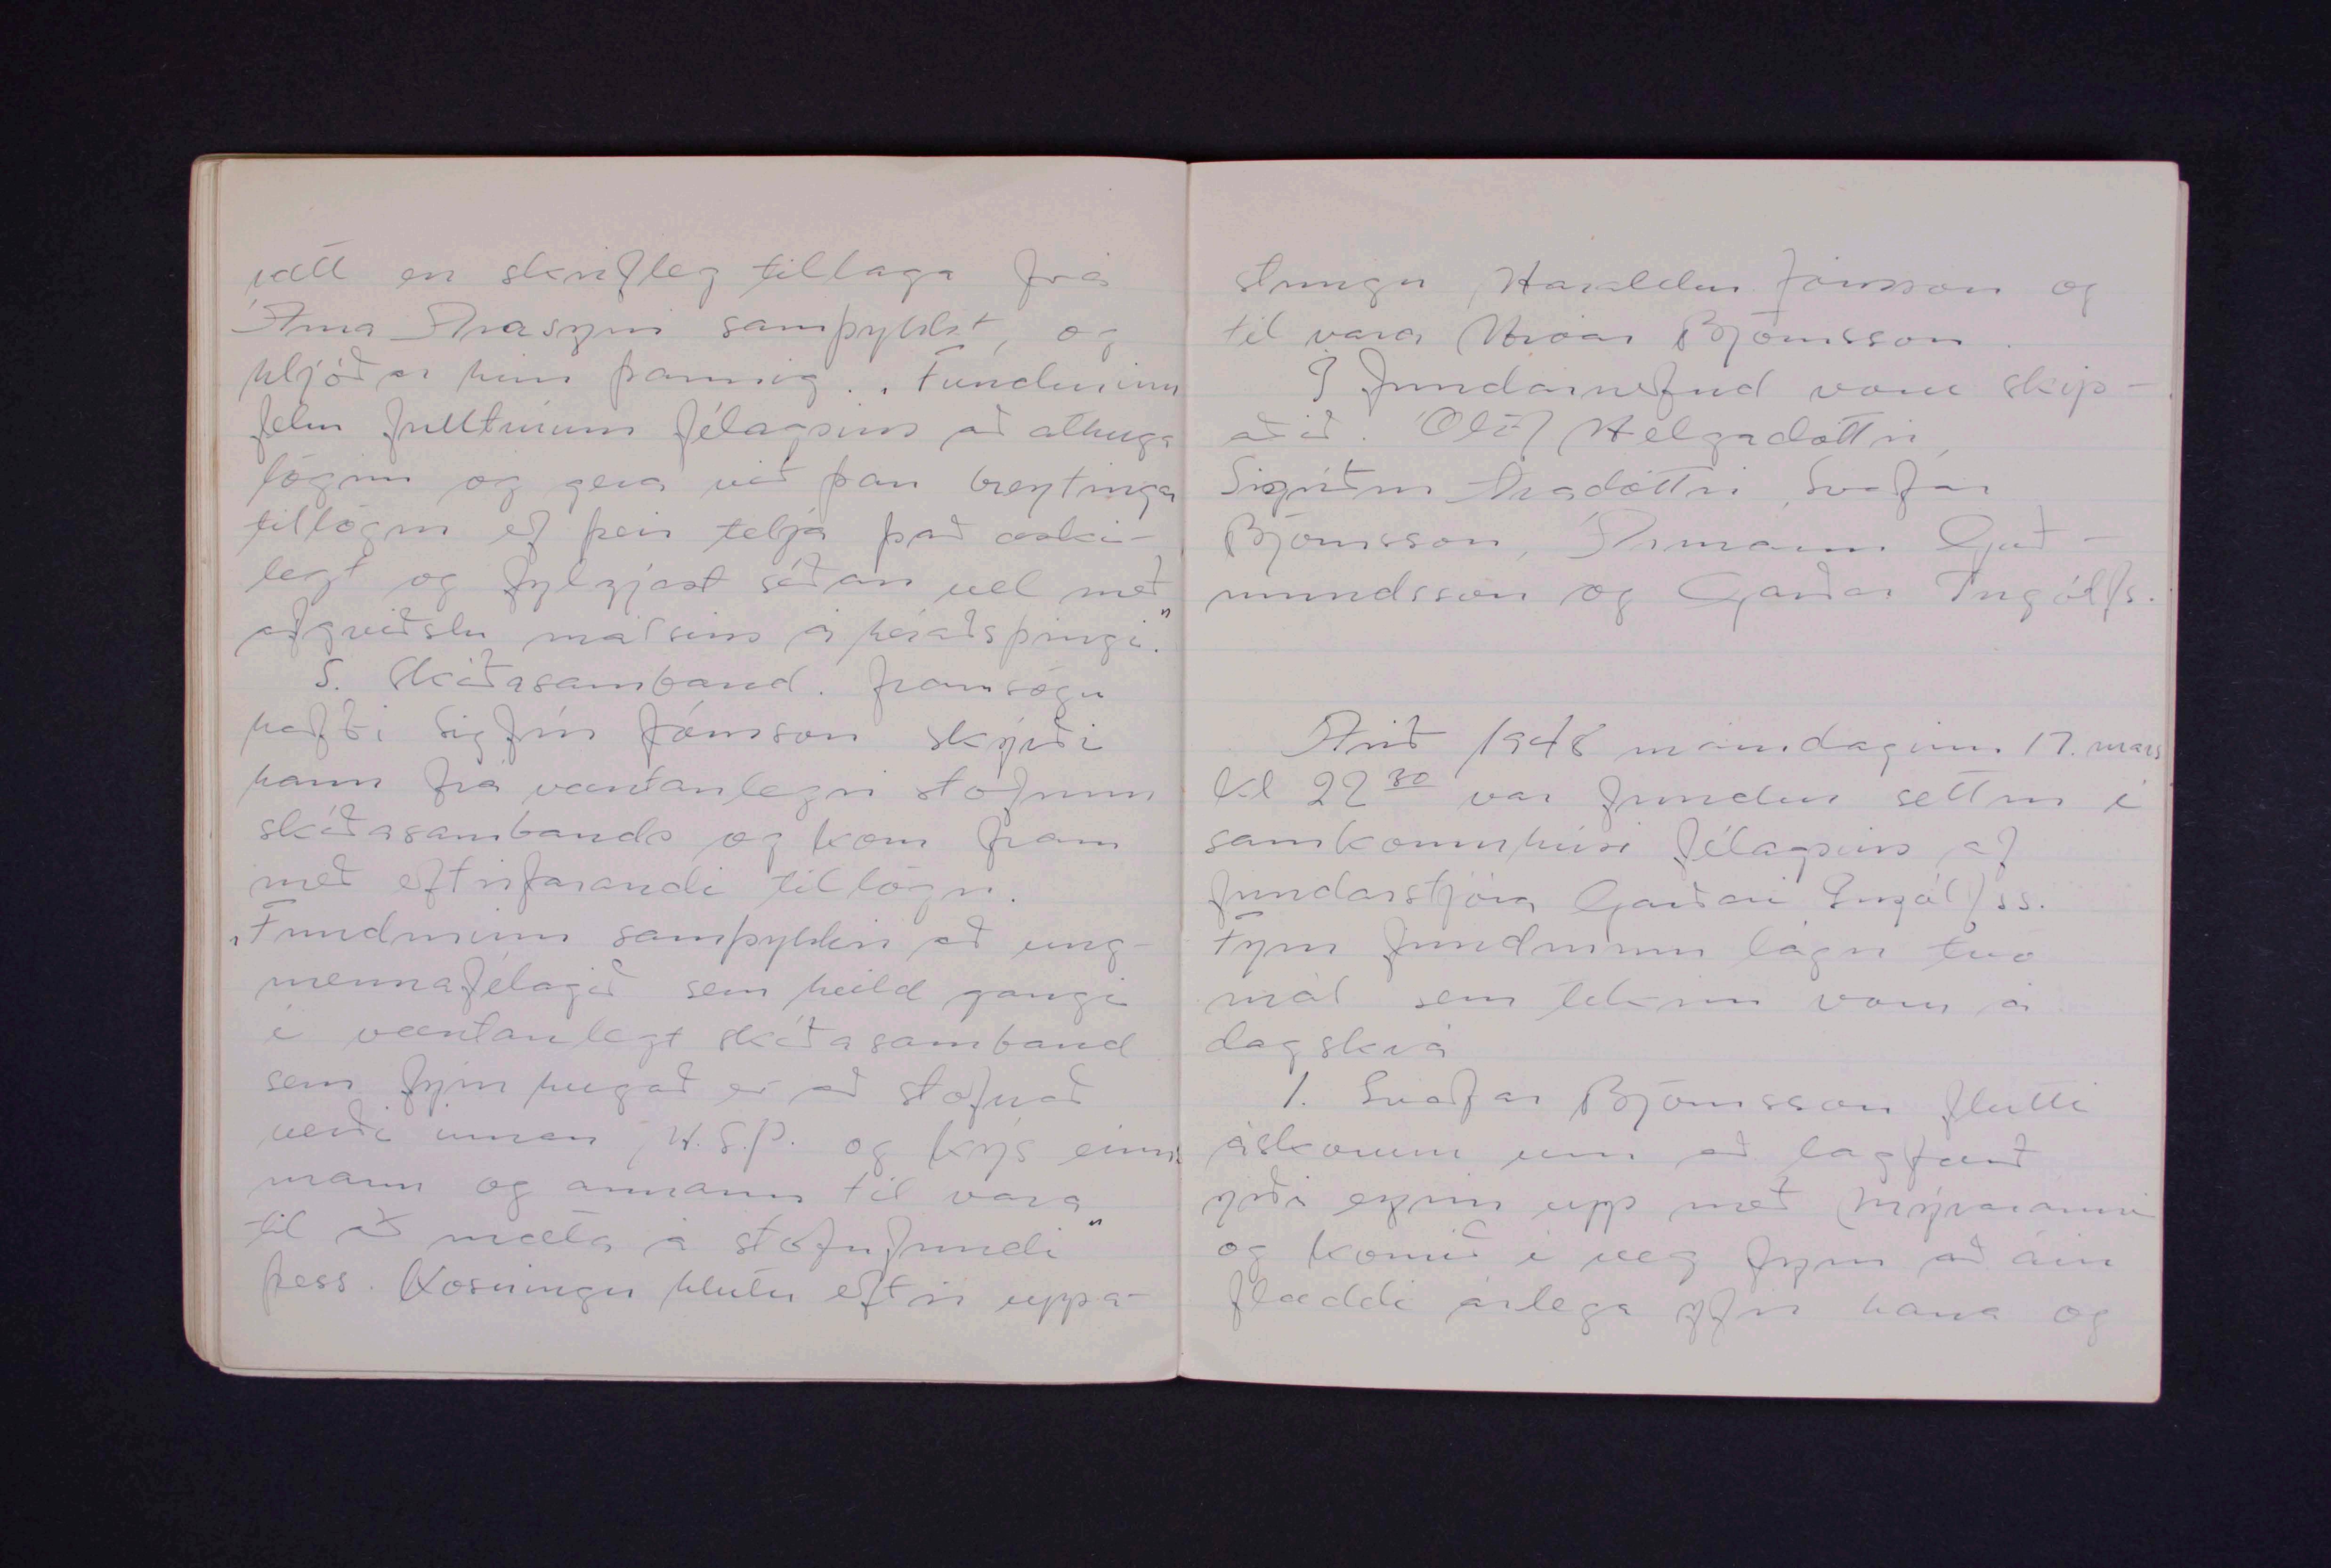 rætt en skrifleg tillaga frá
Árna Arasyni samþykkt, og
hljóðar hún þannig. „Fundurinn
felur fulltrúum félagsins að athuga
lögin og gera við þau breytinga
tillögur ef þeir telja það æski-
legt og fylgjast síðan vel með
afgreiðslu málsins á héraðsþingi."
5. Skíðasamband. Framsögu
hafði Sigfús Jónsson skýrði
hann frá væntanlegri stofnun
skíðasambands og kom fram
með eftirfarandi tillögu.
„Fundurinn samþykkir að ung-
mennafélagið sem heild gangi
í væntanlegt skíðasamband
sem fyrirhugað er að stofnað
verði innan H.S.Þ. og kýs einn
mann og annann til vara
til að mæta á stofnfundi"
þess. Kosningu hlutu eftir uppá-
stungu, Haraldur Jónsson og
til vara Hróar Björnsson.
Í fundarnefnd voru skip-
aðið. Ólöf Helgadóttir,
Sigríður Aradóttir, Svafar
Björnsson, Ármann Guð-
mundsson og Garðar Ingólfs.
Árið 1948 mánudaginn 17. mars
kl 22 30 var fundur settur í
samkomuhúsi félagsins af
fundarstjóra Garðari Ingólfss.
Fyrir fundinum lágu tvö
mál sem tekin voru á
dagskrá
1. Svafar Björnsson flutti
áskorun um að lagfærð
yrði eyrin upp með Mýraránni
og komið í veg fyrir að áin
flæddi árlega yfir hana og